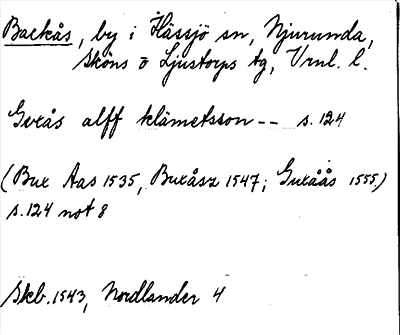 Backås, by i Hässjö sn, Njurunda,
Sköns o Ljustorps tg, Vrnl. l.
Gvrås alff klämetsson -- s. 124
(Bux Aas 1535, Buxåsz 1547; Guxåås 1555)
s. 124 not 8
Skb. 1543, Nordlander 4